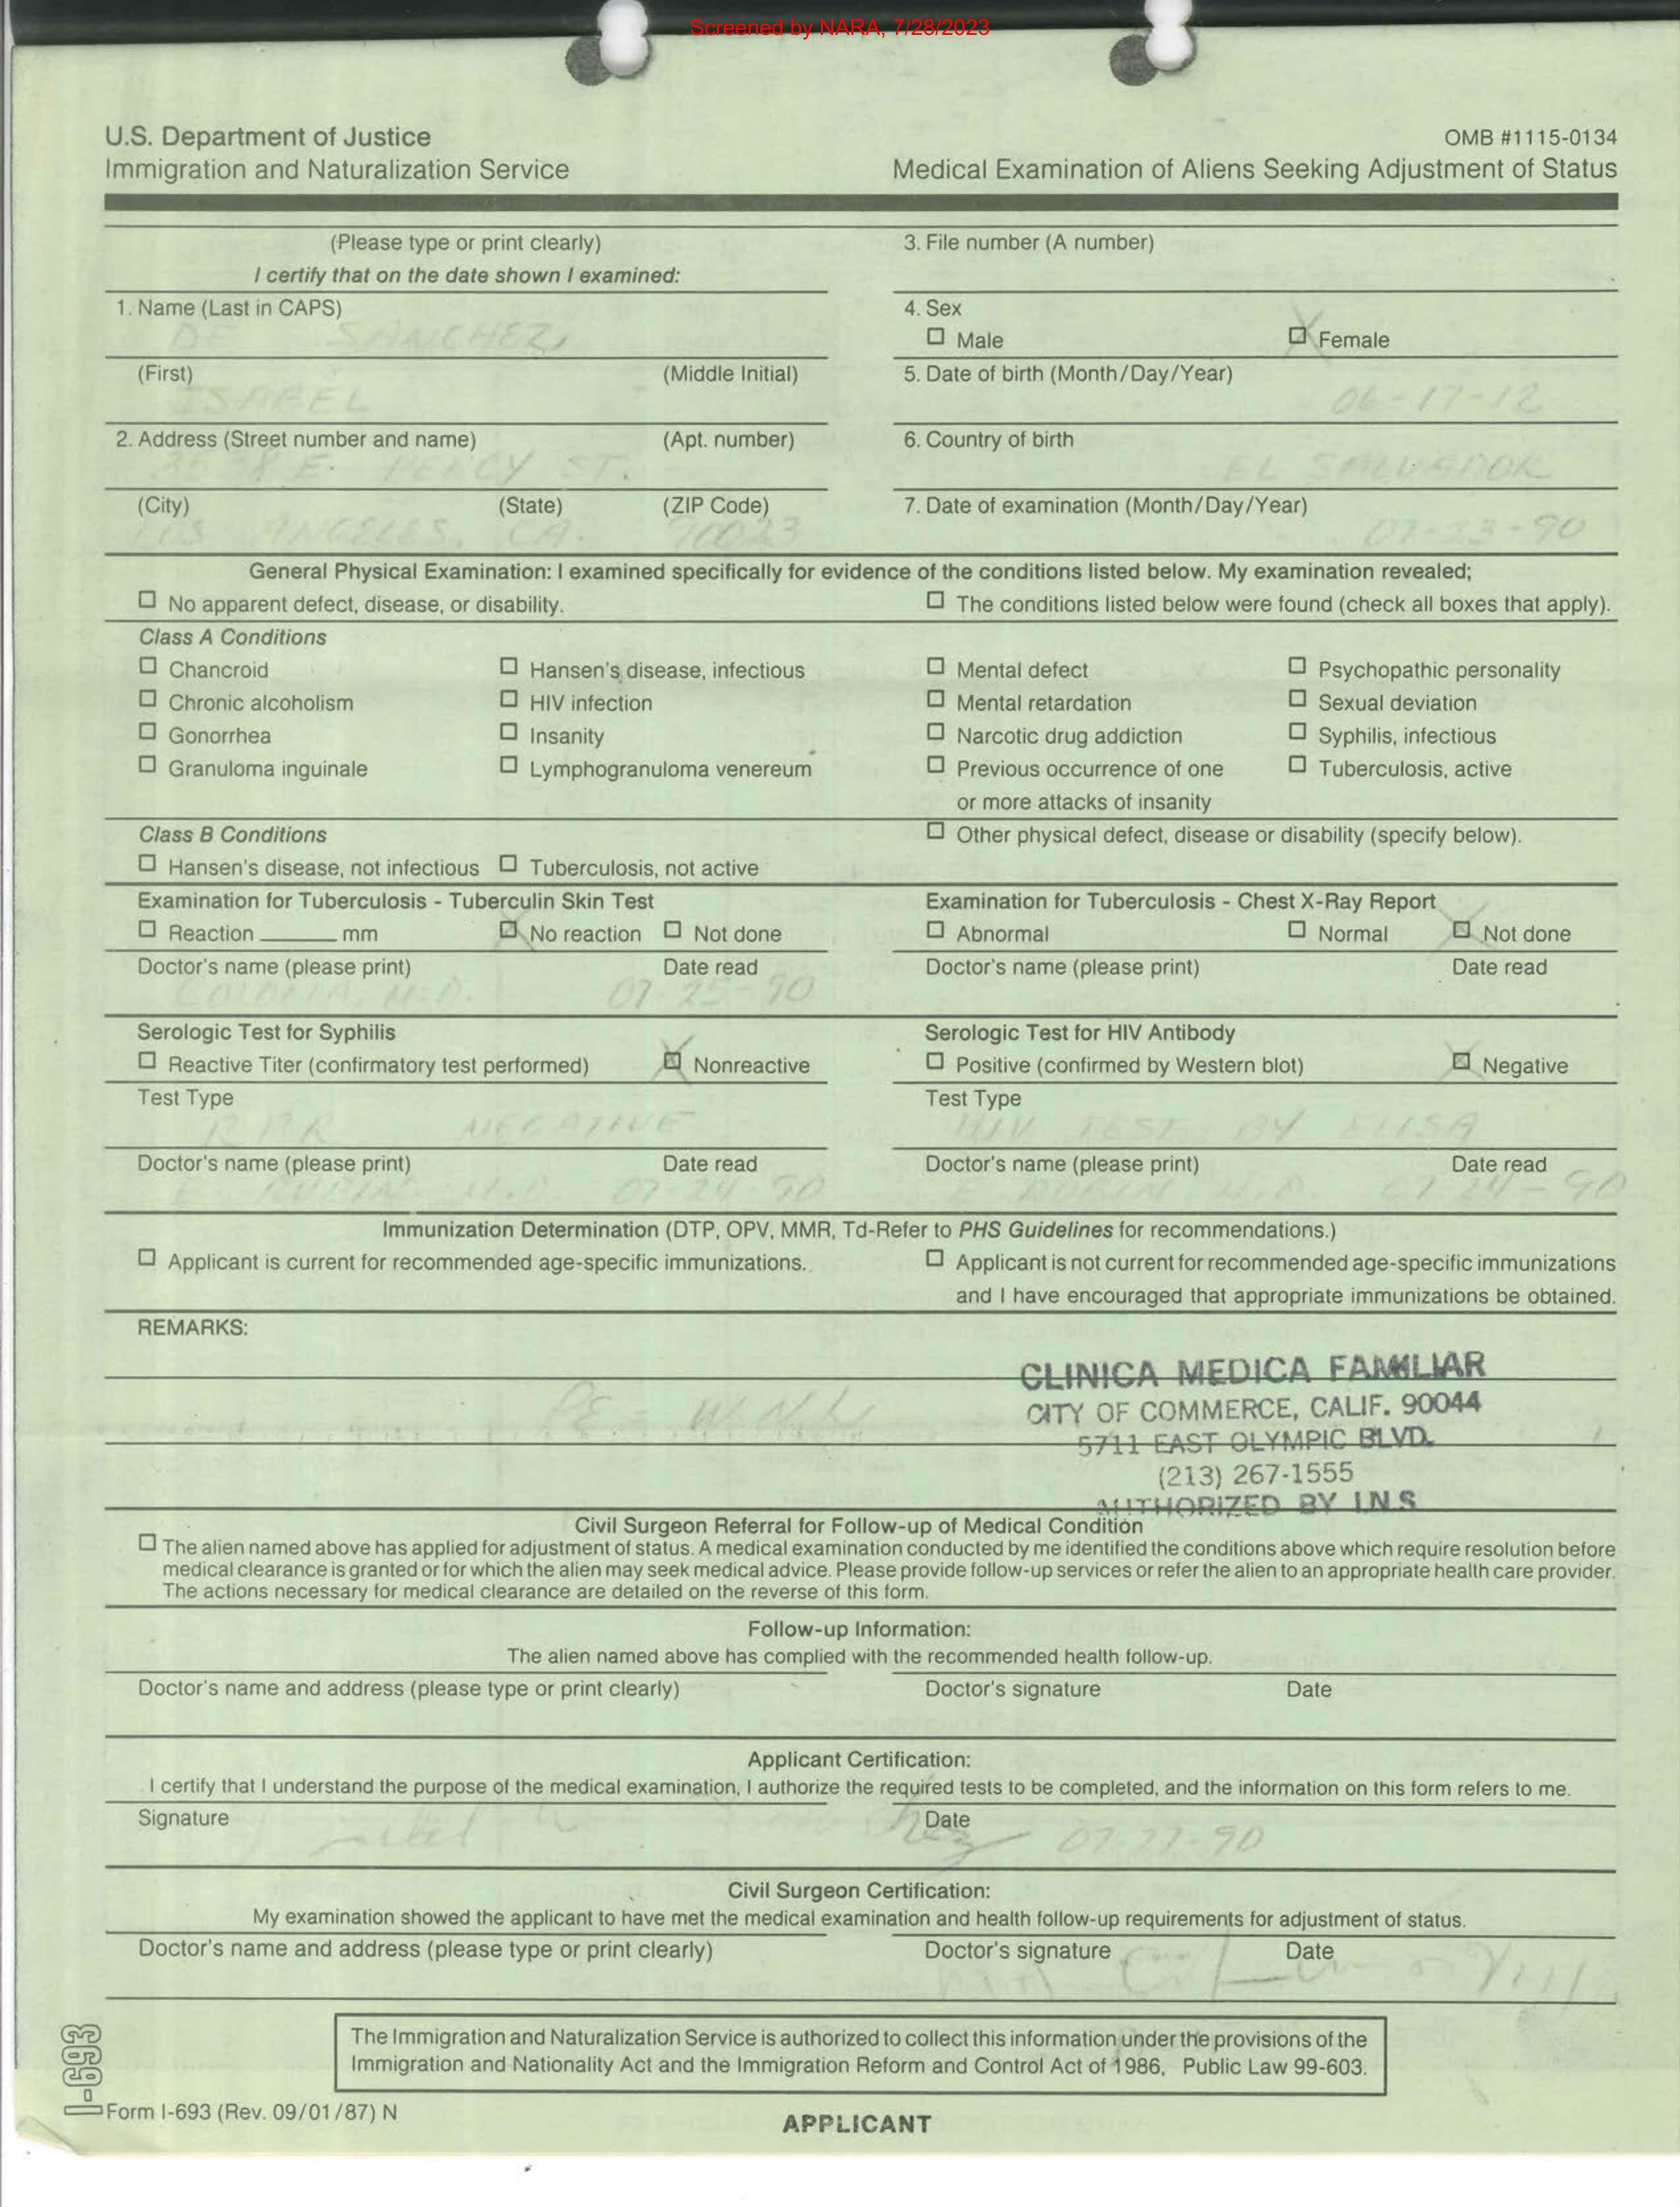 Screened by NARA, 7/28/2023
U.S. Department of Justice
Immigration and Naturalization Service
OMB #1115-0134
Medical Examination of Aliens Seeking Adjustment of Status
(Please type or print clearly)
I certify that on the date shown I examined:
3. File number (A number)
1. Name (Last in CAPS)
DE SANCHEZ
4. Sex
☐ Male ☒ Female
(First) (Middle Initial)
ISABEL
5. Date of birth (Month/Day/Year)
06-17-12
2. Address (Street number and name) (Apt. number)
E. ST.
6. Country of birth
EL SALVADOR
(City) (State) (ZIP Code)
LOS ANGELES, CA. 90023
7. Date of examination (Month/Day/Year)
07-23-90
General Physical Examination: I examined specifically for evidence of the conditions listed below. My examination revealed;
☐ No apparent defect, disease, or disability. ☐ The conditions listed below were found (check all boxes that apply).
Class A Conditions
☐ Chancroid ☐ Hansen's disease, infectious ☐ Mental defect ☐ Psychopathic personality
☐ Chronic alcoholism ☐ HIV infection ☐ Mental retardation ☐ Sexual deviation
☐ Gonorrhea ☐ Insanity ☐ Narcotic drug addiction ☐ Syphilis, infectious
☐ Granuloma inguinale ☐ Lymphogranuloma venereum ☐ Previous occurrence of one ☐ Tuberculosis, active
or more attacks of insanity
Class B Conditions ☐ Other physical defect, disease or disability (specify below).
☐ Hansen's disease, not infectious ☐ Tuberculosis, not active
Examination for Tuberculosis - Tuberculin Skin Test
☐ Reaction ______ mm ☒ No reaction ☐ Not done
Doctor's name (please print) Date read
M.D. 07-25-90
Examination for Tuberculosis - Chest X-Ray Report
☐ Abnormal ☐ Normal ☒ Not done
Doctor's name (please print) Date read
Serologic Test for Syphilis
☐ Reactive Titer (confirmatory test performed) ☒ Nonreactive
Test Type
RPR NEGATIVE
Doctor's name (please print) Date read
E. RUBIN, M.D. 07-24-90
Serologic Test for HIV Antibody
☐ Positive (confirmed by Western blot) ☒ Negative
Test Type
HIV TEST BY ELISA
Doctor's name (please print) Date read
E RUBIN, M.D. 07-24-90
Immunization Determination (DTP, OPV, MMR, Td-Refer to PHS Guidelines for recommendations.)
☐ Applicant is current for recommended age-specific immunizations.
☐ Applicant is not current for recommended age-specific immunizations
and I have encouraged that appropriate immunizations be obtained.
REMARKS:
PE - W.N.L.
CLINICA MEDICA FAMILIAR
CITY OF COMMERCE, CALIF. 90044
5711 EAST OLYMPIC BLVD.
(213) 267-1555
AUTHORIZED BY I.N.S
Civil Surgeon Referral for Follow-up of Medical Condition
☐ The alien named above has applied for adjustment of status. A medical examination conducted by me identified the conditions above which require resolution before
medical clearance is granted or for which the alien may seek medical advice. Please provide follow-up services or refer the alien to an appropriate health care provider.
The actions necessary for medical clearance are detailed on the reverse of this form.
Follow-up Information:
The alien named above has complied with the recommended health follow-up.
Doctor's name and address (please type or print clearly) Doctor's signature Date
Applicant Certification:
I certify that I understand the purpose of the medical examination, I authorize the required tests to be completed, and the information on this form refers to me.
Signature Date
Civil Surgeon Certification:
My examination showed the applicant to have met the medical examination and health follow-up requirements for adjustment of status.
Doctor's name and address (please type or print clearly) Doctor's signature Date
The Immigration and Naturalization Service is authorized to collect this information under the provisions of the
Immigration and Nationality Act and the Immigration Reform and Control Act of 1986, Public Law 99-603.
I-693
Form I-693 (Rev. 09/01/87) N
APPLICANT